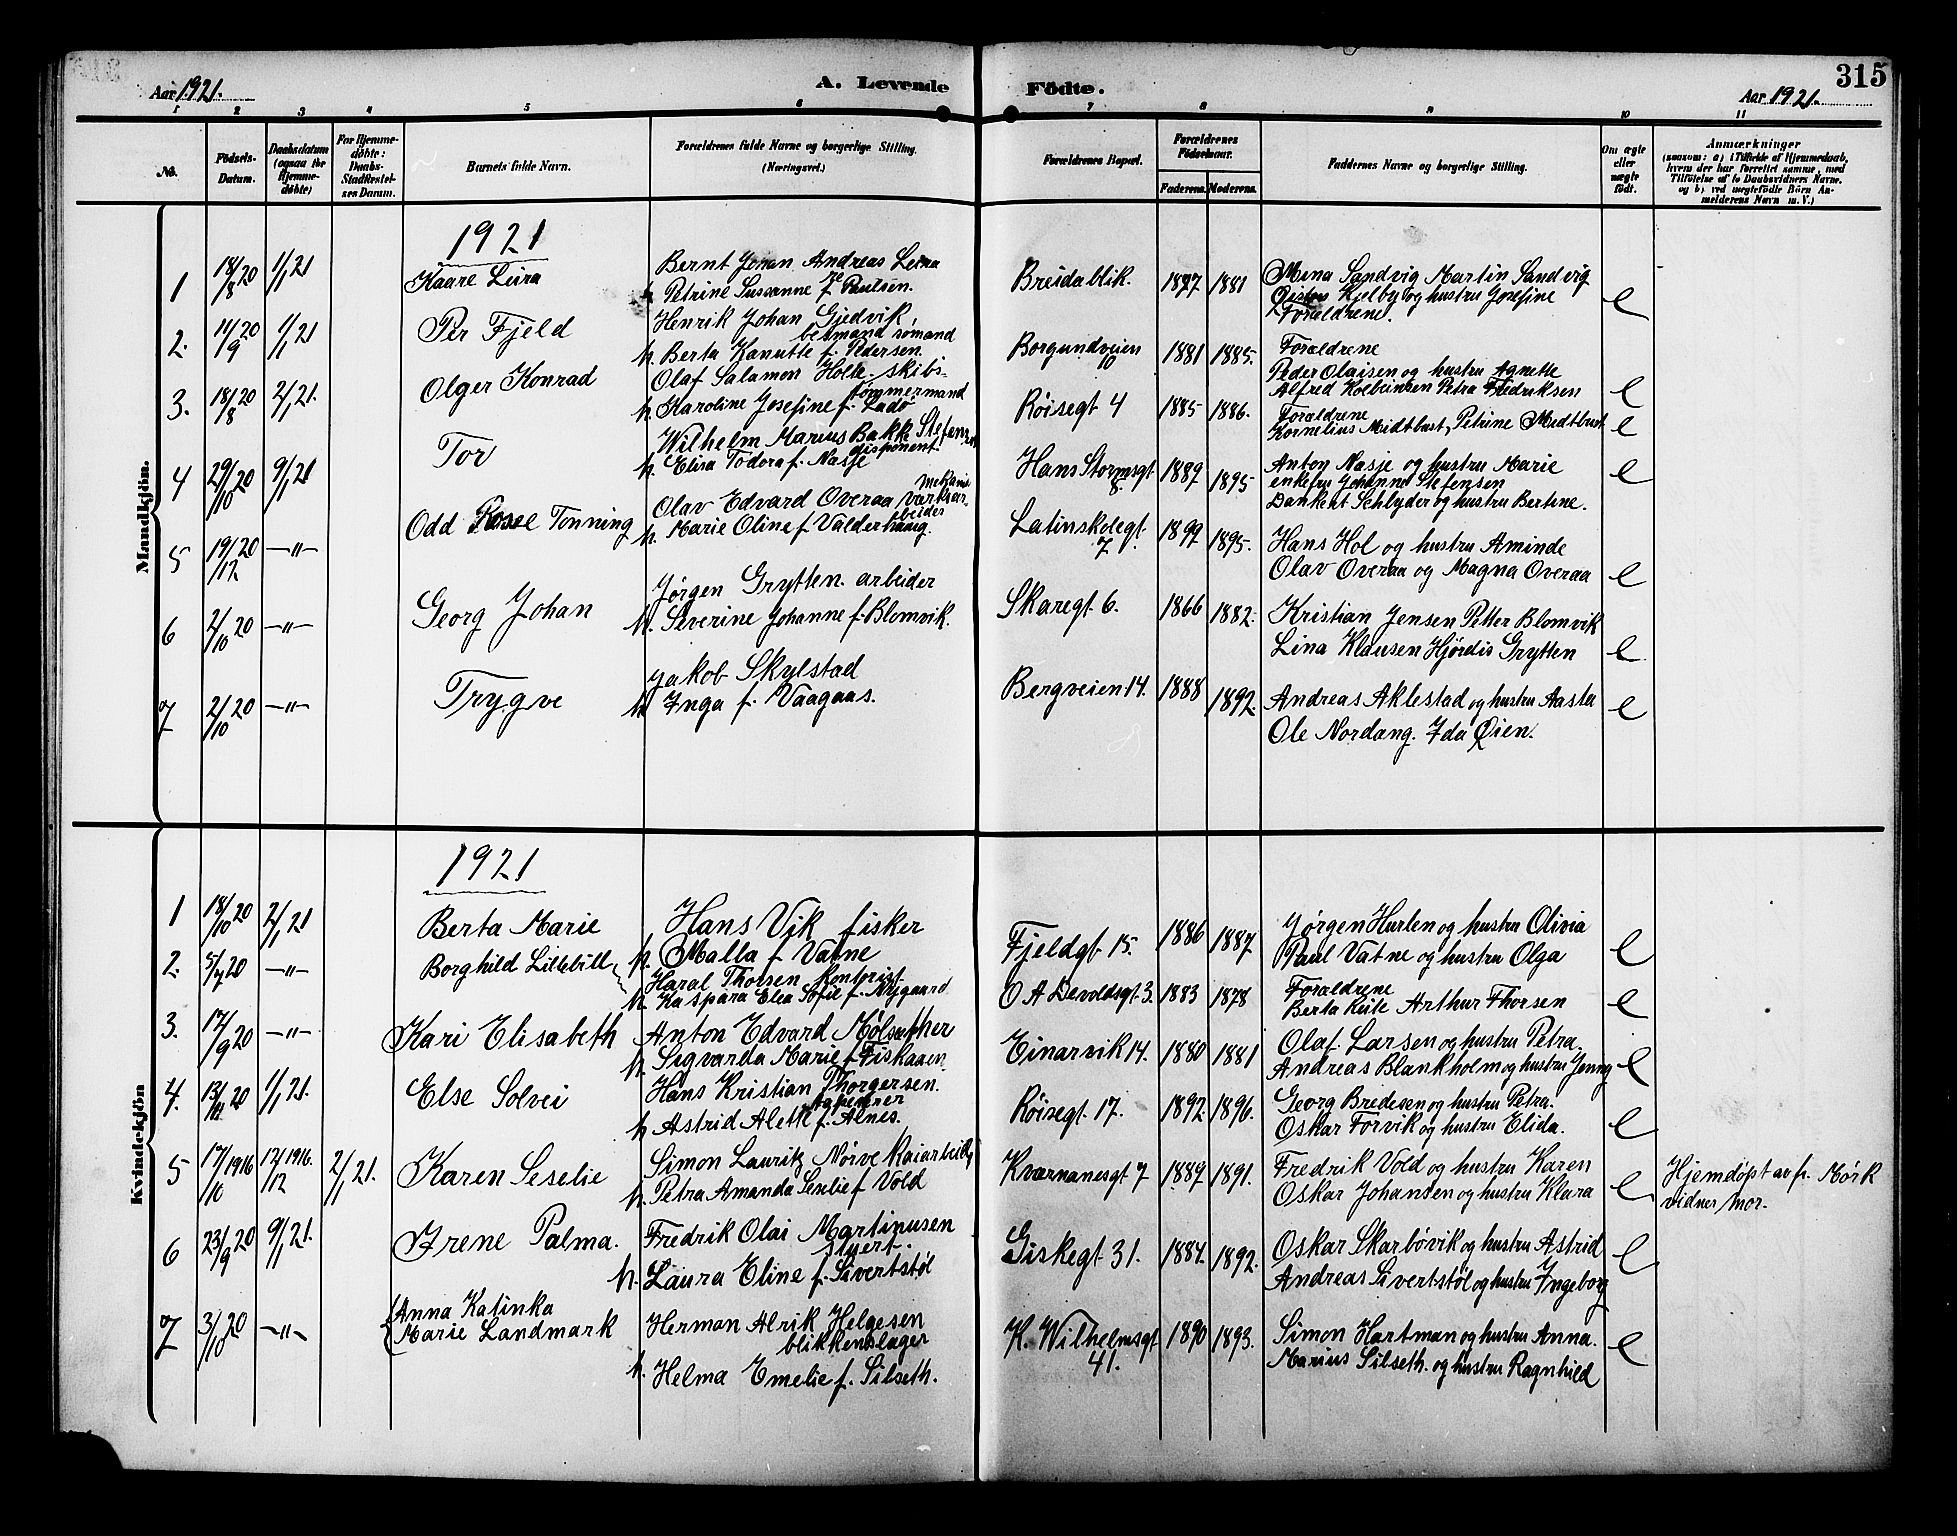 315
Aar 1921.
A. Levende Födte.
Aar 1921.
1 2 3 4 5 6 7 8 9 10 11
No.
Födsels-Datum.
Daabsdatum (ogsaa for Hjemme-döbte)
For Hjemme-döbte: Daabs-Stadfæstel-ses Datum.
Barnets fulde Navn.
Forældrenes fulde Navne og borgerlige Stilling. (Næringsvei.)
Forældrenes Bopæl.
Forældrenes Födselsaar.
Faderens. Moderens.
Faddernes Navne og borgerlige Stilling.
Om ægte eller uægte födt.
Anmærkninger
(saasom: a) i Tilfælde af Hjemmedaab, hvem der har forrettet samme, med Tilföielse af to Daabsvidners Navne, og b) ved uægtefödte Börn An-melderens Navn m. V.)
Mandkjön.
1921
1 18/8 20 1/1 21 Kaare Leira
Bernt Johan Andreas Leira
h. Petrine Sussanne f. Paulsen.
Breidablik. 1877 1881
Mena Sandvig Martin Sandvig
Kjelby og hustru Josefine
Forældrene. e
2. 11/9 20 1/1 21 Per Fjeld
Henrik Johan Gjedvik
bestmand sømand
h. Berta Kanutte f. Pedersen.
Borgundveien 1881 1885.
Forældrene
Peder Olaisen og hustru Agnette
Alfred Kolbeinsen Petra Fredriksen e
3. 18/8 20 2/1 21. Olger Konrad
Olaf Salamon Holte. skibs-
tømmermand
h. Karoline Josefine f. Ladø
Røisegt 4 1885 1886.
Forældrene
Kornelius Midtbust, Petrine Midtbust e
4 29/10 20 9/1 21 Tor
Wilhelm Marius Bakke Stefensen
disponent
h. Elisa Todora f. Nasje
Hans Stormsgt 8. 1889 1895
Anton Nasje og hustru Marie
enkefru Johanna Stefensen
Dankert Schlyder og hustru Bertine. e
5 19/12. 20 -"- Odd Tonning
Olav Edvard Overaa
arbeider
h. Marie Oline f. Valderhaug.
Latinskolegt. 7 1899 1895.
Hans Hol og hustru Aminde
Olav Overaa og Magna Overaa e
6 2/10 20 -"- Georg Johan
Jørgen Grytten. arbeider
h. Severine Johanne f. Blomvik.
Skaregt 6. 1866 1882.
Kristian Jensen Petter Blomvik
Lina Klausen Hjørdis Grytten e
7 2/10 20 -"- Trygve
Jakob Skylstad
h Inga f. Vaagaas.
Bergveien 14. 1888 1892.
Andreas Aklestad og hustru Aasta
Ole Nordang. Ida Øien. e
Kvindekjön
1921
1 18/10 20 2/1 21 Berta Marie
Hans Vik fisker
h. Malla f Vatne
Fjeldgt 15. 1886 1887
Jørgen Hurlen og hustru Olivia
Paul Vatne og hustru Olga e
2. 5/7 20 -"- Borghild Lillebill
Haral Thorsen kontorist
h. Kaspara Elea Sofie f. Nygaard
O A Devoldsgt. 3. 1883 1878
Forældrene
Berta Riste Arthur Thorsen e
3. 17/9 20 -"- Kari Elisabeth
Anton Edvard Mølsæther
h. Sigvarda Marie f. Fiskaaen.
Einarvik 14. 1880 1881
Olaf. Larsen og hustru Petra.
Andreas Blankholm og hustru Jenny e
4. 13/11 20 1/1 21. Else Solvei
Hans Kristian Thorgersen.
tapetserer
h Astrid Alette f. Alnes.
Røisegt 17. 1892 1896.
Georg Bredesen og hustru Petra.
Oskar Torvik og hustru Elida. e
5 17/10 1916 12/12 1916. 2/1 21. Karen Seselie
Simon Lauritz Nørve kaiarbeid
h. Petra Amanda Seselie f Vold
Kvernanesgt 7 1889 1891.
Fredrik Vold og hustru Karen
Oskar Johansen og hustru Klara e
Hjemdøpt av fr. Mørk
vidner mor.
6 23/9 20 9/1 21. Irene Palma.
Fredrik Olai Martinusen
styert.
h. Laura Eline f. Sivertstøl
Giskegt 31. 1884. 1892.
Oskar Skarbøvik og hustru Astrid
Andreas Sivertstøl og hustru Ingeborg e
7 3/10 20 -"- Anna Katinka
Marie Landmark
Herman Alrik Helgesen
blikkenslager
h. Helma Emelie f. Silseth.
K. Wilhelmsgt 41. 1890 1893.
Simon Hartman og hustru Anna.
Marius Silseth. og hustru Ragnhild e